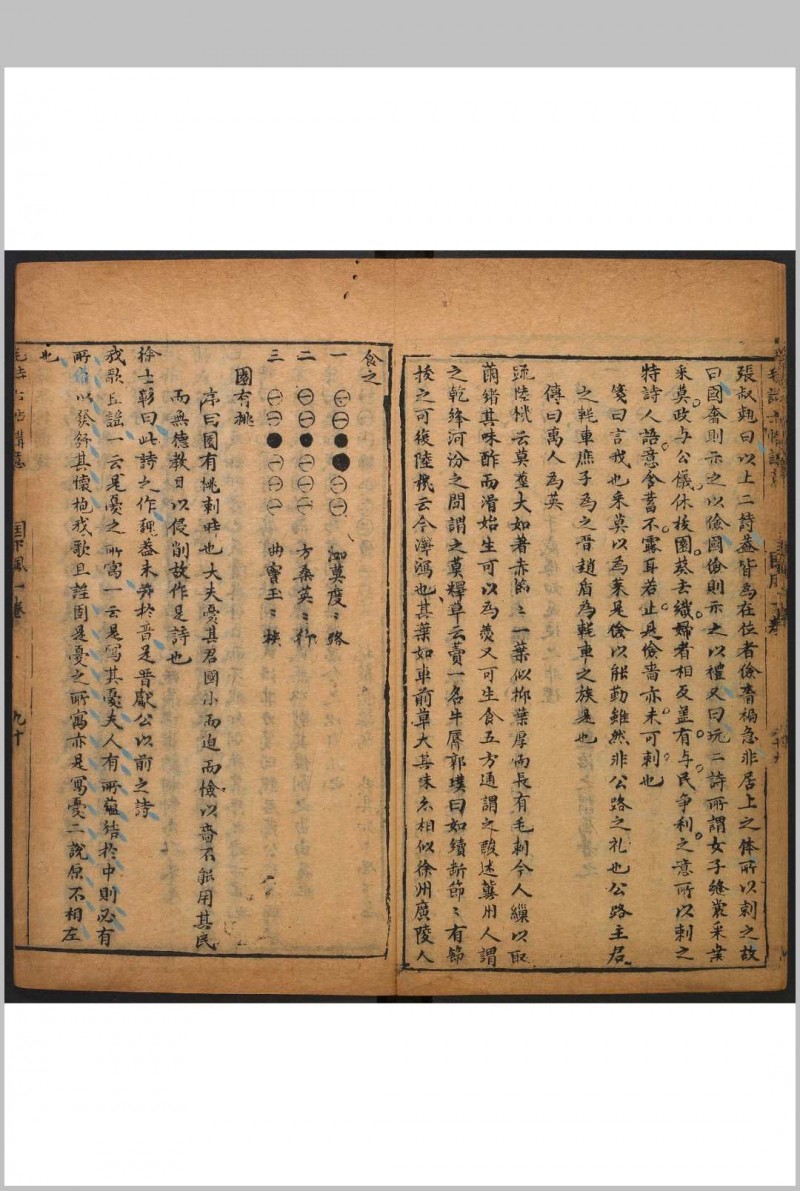 張叔翹曰以上二詩葢皆為在位者儉嗇褊急非居上之体所以刺之故
曰國奢則示之以儉國儉則示之以禮又曰玩二詩所謂女子縫裳采桑
采莫政与公儀休拔園葵去織婦者相反盖有与民爭利之意所以刺之
特詩人語意含蓄不露耳若止是儉嗇亦未可刺也
箋曰言我也采莫以為菜是儉以能勤雖然非公路之礼也公路主君
之軞車庶子為之晋趙盾為軞車之族是也
傳曰萬人為英
疏陸機云莫莖大如著赤節〻一葉似柳葉厚而長有毛刺今人繅以取
繭緒其味酢而滑始生可以為羹又可生食五方通謂之酸迷冀州人謂
之乾絳河汾之間謂之莫釋草云藚一名牛脣郭璞曰如續斷節〻有節
拔之可復陸機云今澤瀉也其葉如車前草大其味亦相似徐州廣陵人
食之
一 洳莫度〻路
二 方桑英〻行
三 曲藚玉〻族
園有桃
序曰園有桃刺時也大夫憂其君國小而迫而儉以嗇不能用其民
而無德教日以侵削故作是詩也
徐士彰曰此詩之作疑葢未并於晋是晋獻公以前之詩
我歌且謠一云是憂之所寓一云是寫其憂夫人有所蘊結於中則必有
所借以發舒其懷抱我歌且謠固是憂之所寓亦是寫憂二說原不相左
也
國風一卷
九十